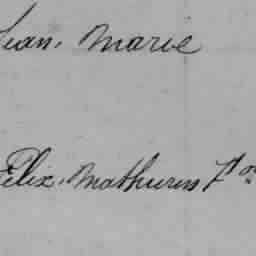 Jean. Marie
Félix. Mathurin